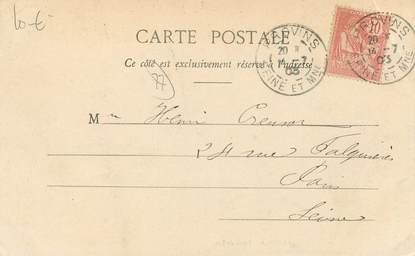 10-€
CARTE POSTALE
Ce côté est exclusivement réservé à l'adresse
PROVINS
20
-7
03
SEINE ET MNE
PROVINS
20
-7
03
SEINE ET MNE
10
M Henri
24 rue Falguière
Paris
Seine